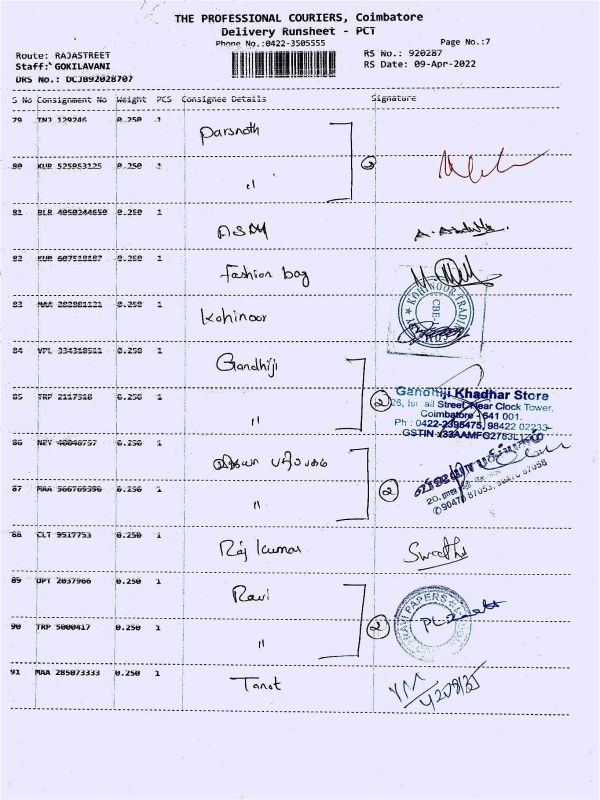 THE PROFESSIONAL COURIERS, Coimbatore
Delivery Runsheet - PCT
Phone No.:0422-3505555
Page No.:7
Route: RAJASTREET
Staff: GOKILAVANI
DRS No.: DCJ892028707
RS No.: 920287
RS Date: 09-Apr-2022
S No Consignment No Weight PCS Consignee Details Signature
79 TNJ 129246 0.250 1 Parsnath
80 KUR 525053125 0.250 1 " 2
81 BLR 4050244650 0.250 1 DSM
82 KUR 607518187 0.250 1 Fashion bag
83 MAA 0.250 1 Kohinoor
KOHINOOR TRADING COMPANY
84 VPL 0.250 1 Gandhiji
85 TRP 2117318 0.250 1 " 2
Gandhiji Khadhar Store
Street, Near Clock Tower,
Coimbatore - 641 001.
Ph : 0422-2395475, 98422 02233
86 0.250 1
87 MAA 0.250 1 " 2
88 CLT 9517753 0.250 1 Raj Kumar Swathi
89 UPT 2037966 0.250 1 Ravi
90 TRP 5000417 0.250 1 " 2
RAVI PAPERS
91 MAA 285073333 0.250 1 Tanot